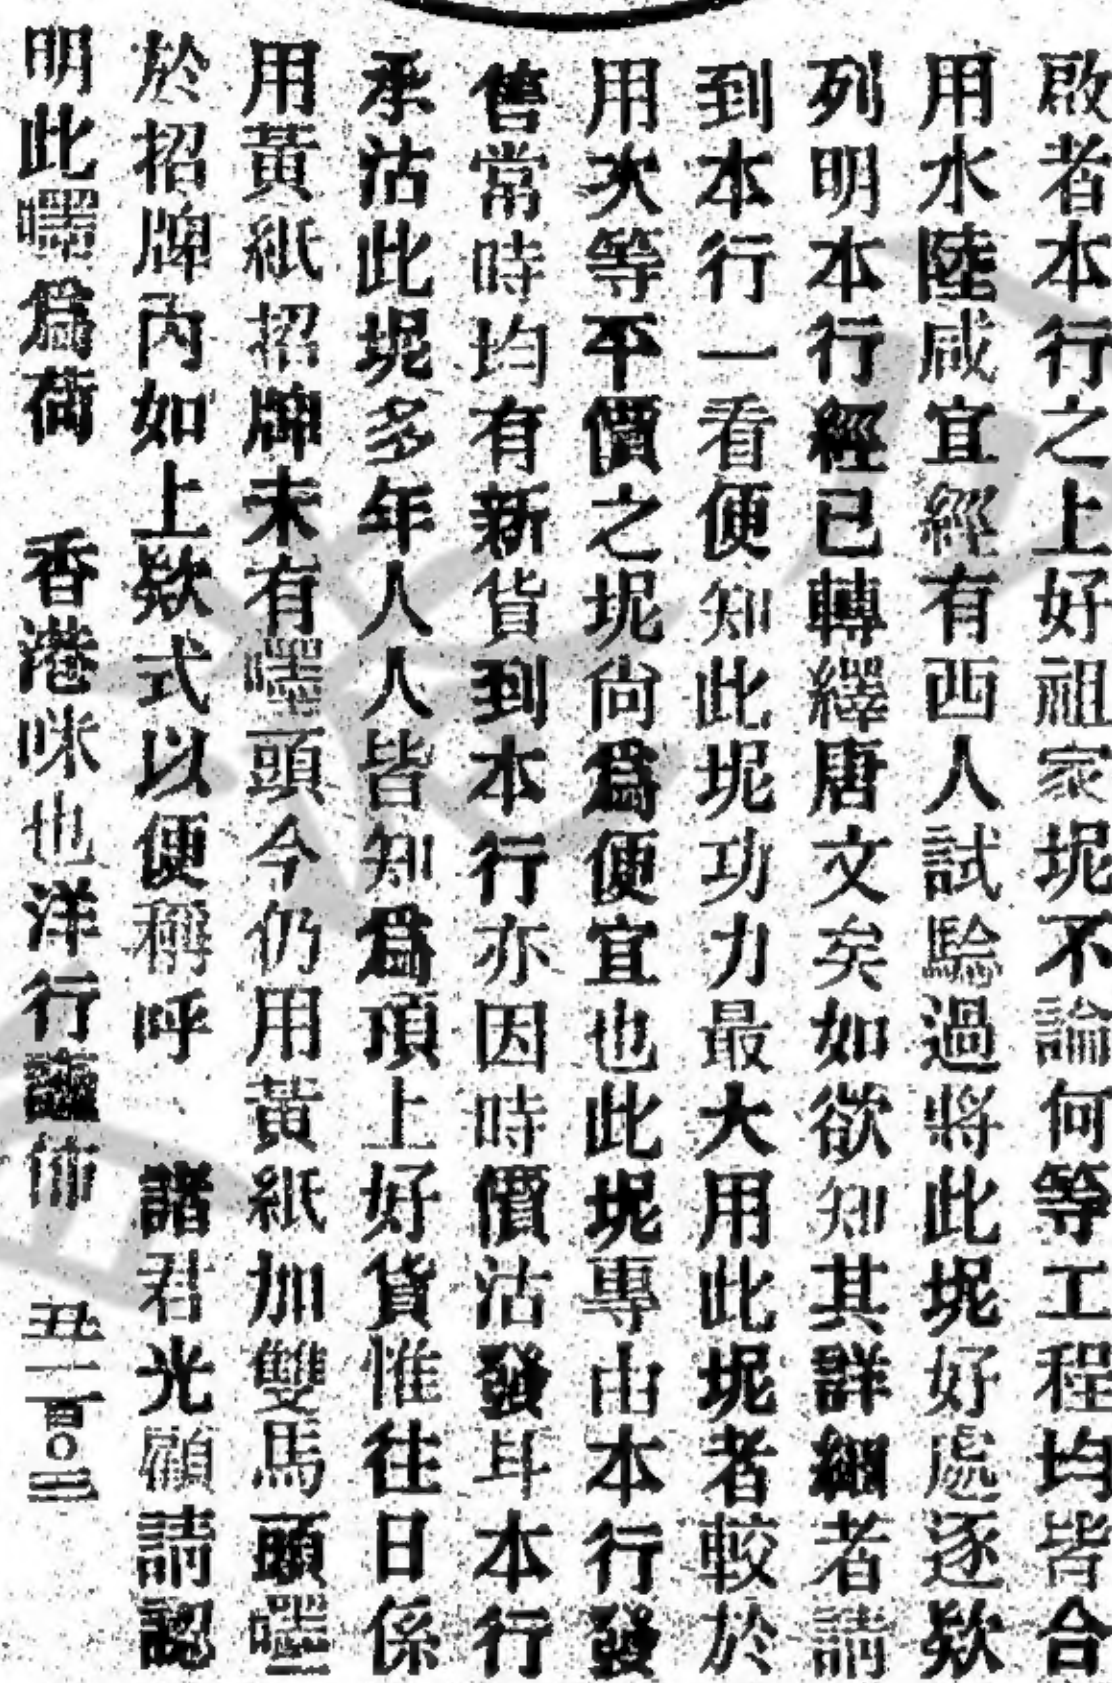 啟者本行之上好祖家坭不論何等工程均皆合
用水陸咸宜經有西人試驗過將此坭好處逐欵
列明本行經已轉繹唐文矣如欲知其詳細者請
到本行一看便知此坭功力最大用此坭者較於
用次等平價之坭尙爲便宜也此坭專由本行發
售常時均有新貨到本行亦因時價沽發耳本行
承沽此坭多年人人皆知爲頂上好貨惟往日係
用黃紙招牌未有嘜頭今仍用黃紙加雙馬頭嘜
於招牌內如上欵式以便稱呼 諸君光顧請認
明此嘜爲荷 香港咪也洋行謹佈 丑一百〇三